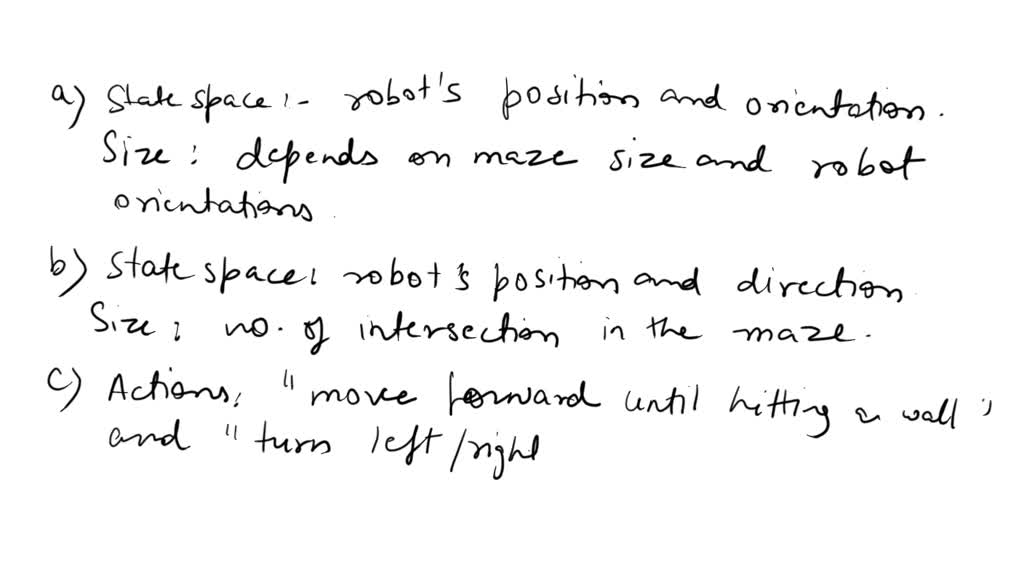 a) State space :- robot's position and orientation.
Size : depends on maze size and robot
orientations.
b) State space : robot's position and direction
Size : no. of intersection in the maze.
c) Actions, "move forward until hitting a wall"
and "turn left/right